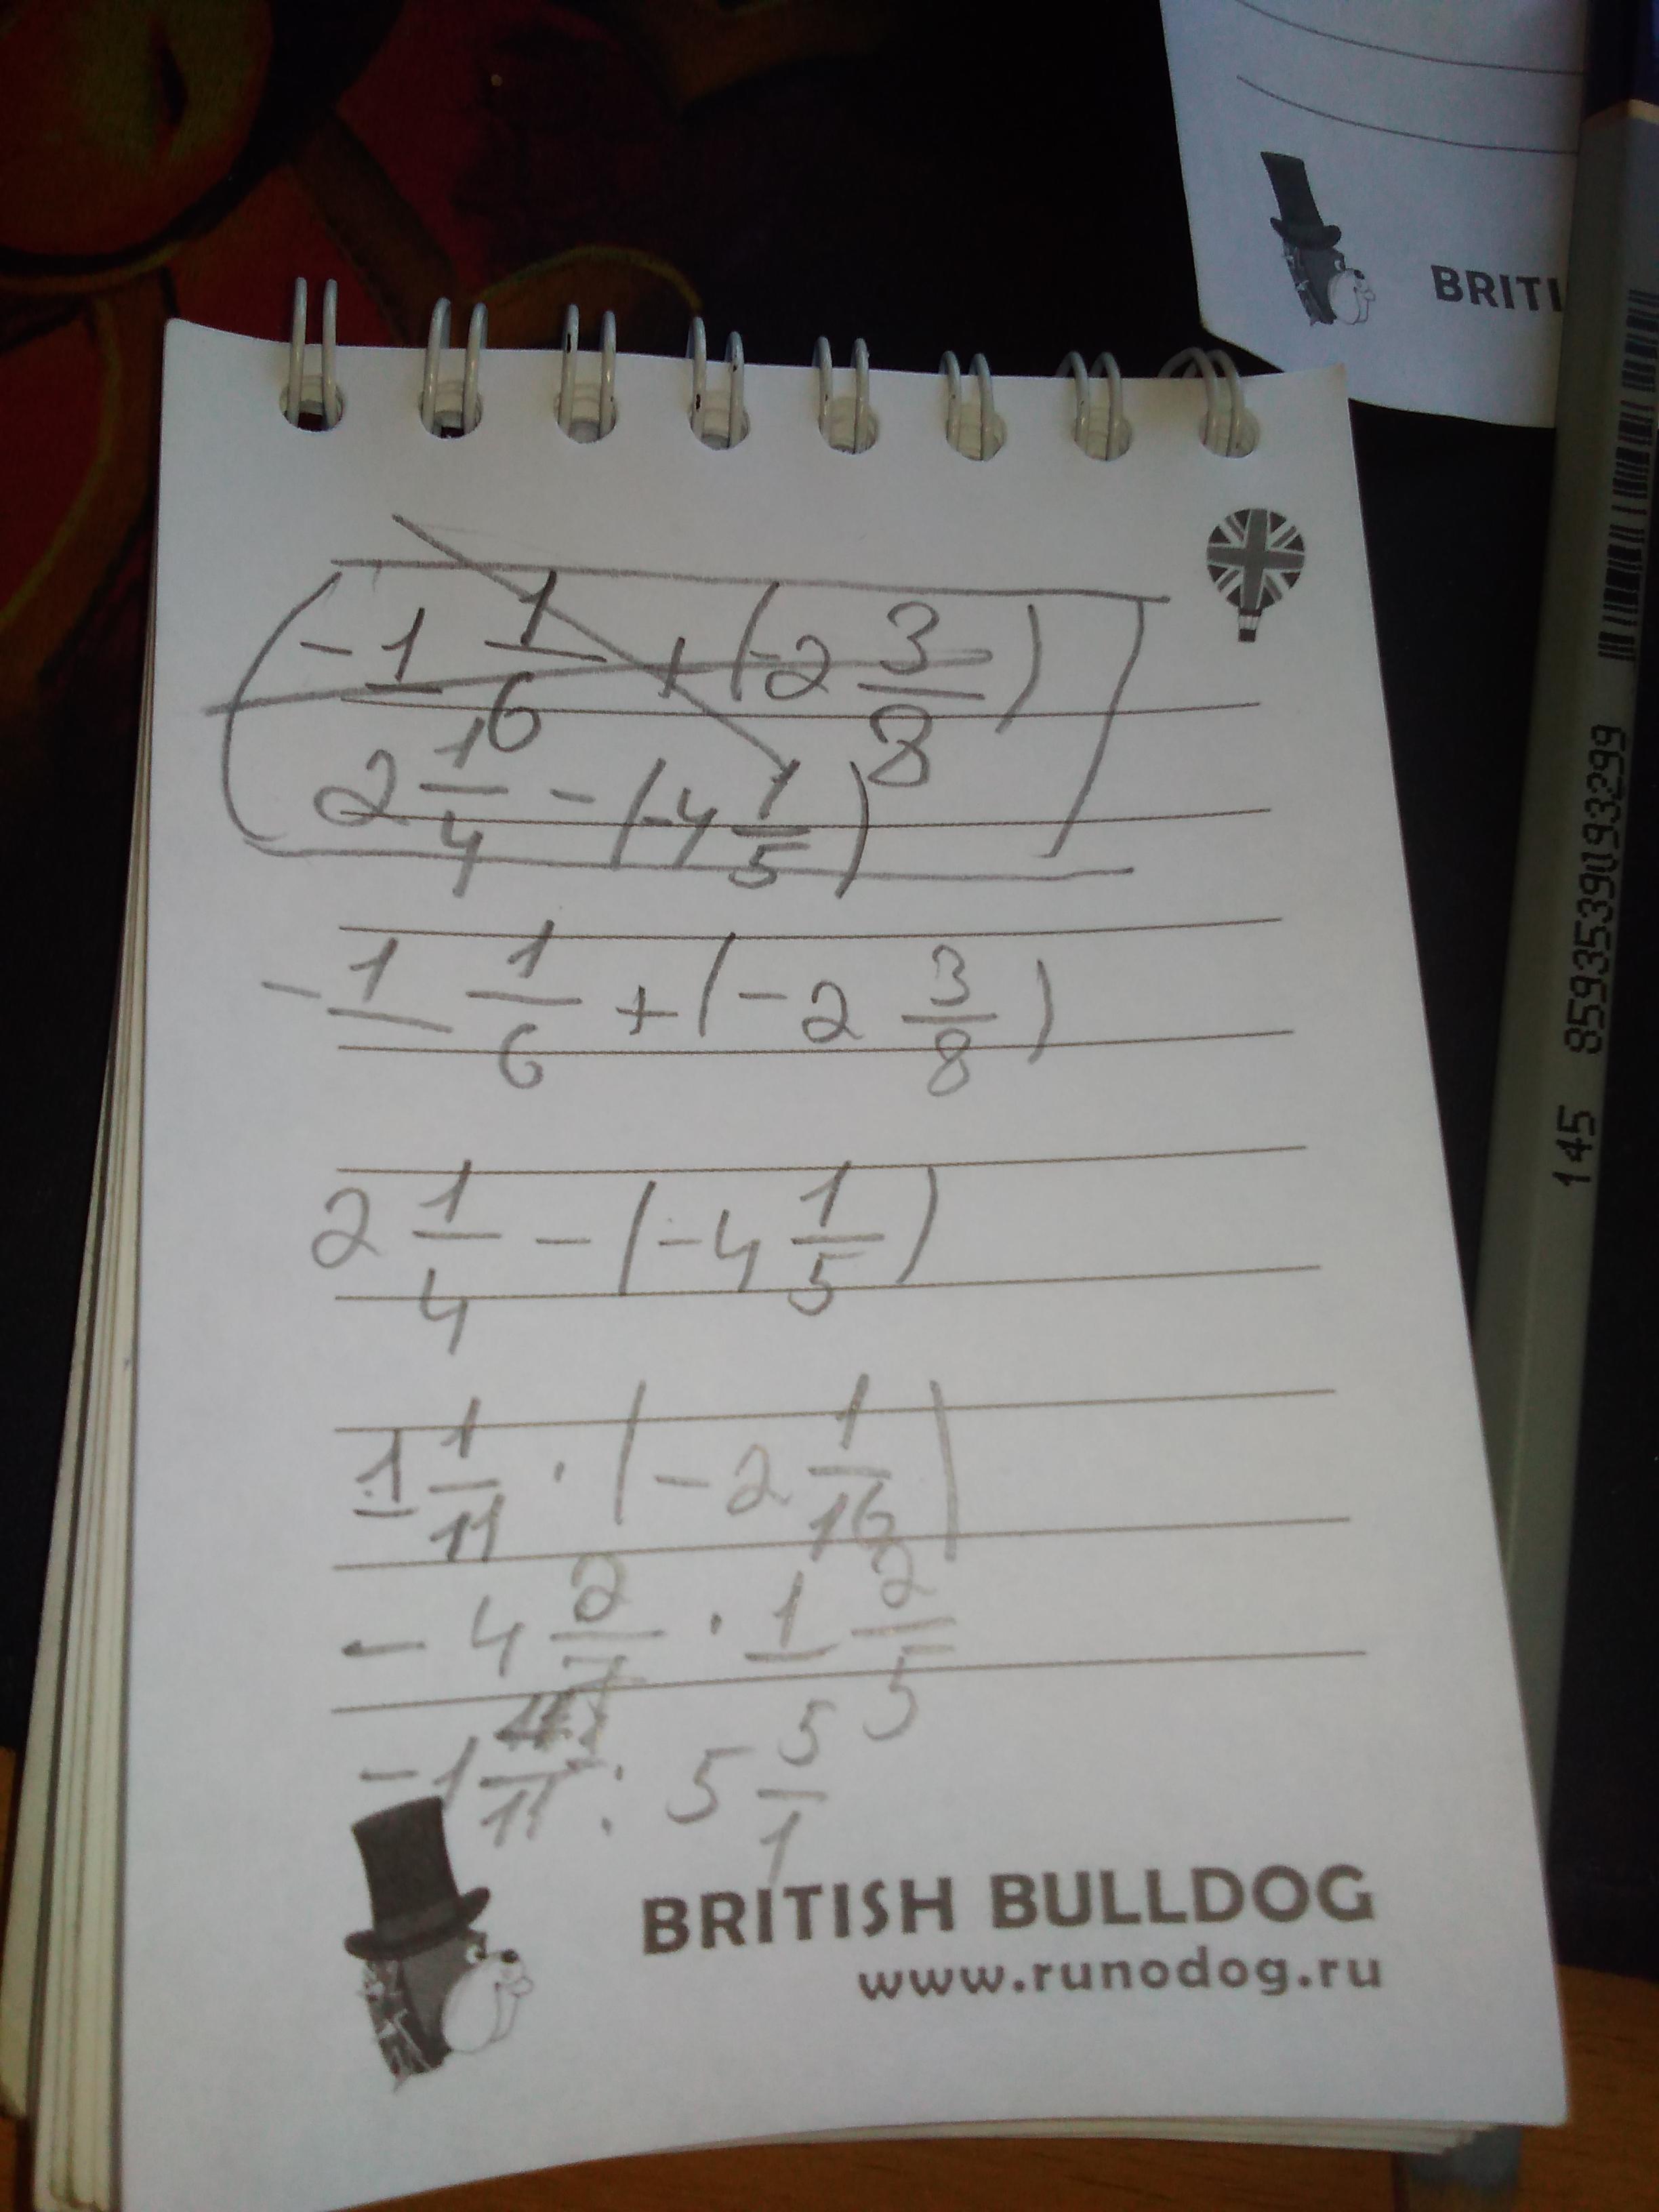 BRITI
145 8593539093299
-1 1/6 + (-2 3/8)
2 1/4 - (-4 1/5)
-1 1/6 + (-2 3/8)
2 1/4 - (-4 1/5)
1 1/11 · (-2 1/16)
-4 2/7 · 1 2/5
-1 /11 : 5 5/1
BRITISH BULLDOG
www.runodog.ru